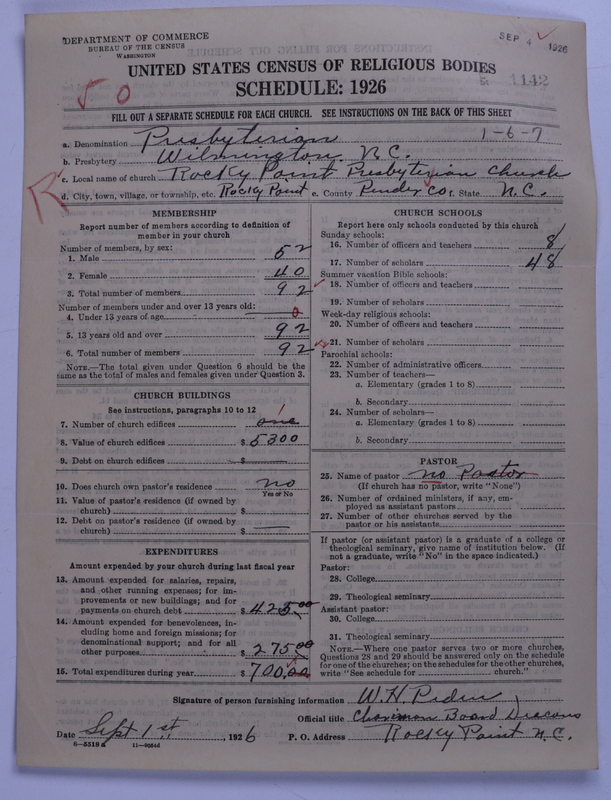 DEPARTMENT OF COMMERCE
BUREAU OF THE CENSUS
WASHINGTON
SEP 4 1926
UNITED STATES CENSUS OF RELIGIOUS BODIES
SCHEDULE: 1926
1142
50
FILL OUT A SEPARATE SCHEDULE FOR EACH CHURCH. SEE INSTRUCTIONS ON THE BACK OF THIS SHEET
1-6-7
a. Denomination Presbyterian
b. Presbytery Wilmington N.C.
c. Local name of church Rocky Point Presbyterian Church
R
d. City, town, village, or township, etc. Rocky Point e. County Pender Co f. State N.C.
MEMBERSHIP
Report number of members according to definition of member in your church
Number of members, by sex:
1. Male 52
2. Female 40
3. Total number of members 92
Number of members under and over 13 years old:
4. Under 13 years of age 0
5. 13 years old and over 92
6. Total number of members 92
NOTE.—The total given under Question 6 should be the
same as the total of males and females given under Question 3.
CHURCH BUILDINGS
See instructions, paragraphs 10 to 12
1
7. Number of church edifices one
8. Value of church edifices $ 5300
9. Debt on church edifices $
10. Does church own pastor's residence no
Yes or No
11. Value of pastor's residence (if owned by
church) $
12. Debt on pastor's residence (if owned by
church) $
EXPENDITURES
Amount expended by your church during last fiscal year
13. Amount expended for salaries, repairs,
and other running expenses; for im-
provements or new buildings; and for
payments on church debt $ 425.00
14. Amount expended for benevolences, in-
cluding home and foreign missions; for
denominational support; and for all
other purposes $ 275.00
15. Total expenditures during year $ 700.00
CHURCH SCHOOLS
Report here only schools conducted by this church
Sunday schools:
16. Number of officers and teachers 8
17. Number of scholars 48
Summer vacation Bible schools:
18. Number of officers and teachers
19. Number of scholars
Week-day religious schools:
20. Number of officers and teachers
21. Number of scholars
Parochial schools:
22. Number of administrative officers
23. Number of teachers—
a. Elementary (grades 1 to 8)
b. Secondary
24. Number of scholars—
a. Elementary (grades 1 to 8)
b. Secondary
PASTOR
25. Name of pastor no Pastor
(If church has no pastor, write "None")
26. Number of ordained ministers, if any, em-
ployed as assistant pastors
27. Number of other churches served by the
pastor or his assistants
If pastor (or assistant pastor) is a graduate of a college or
theological seminary, give name of institution below. (If
not a graduate, write "No" in the space indicated.)
Pastor:
28. College
29. Theological seminary
Assistant pastor:
30. College
31. Theological seminary
NOTE.—Where one pastor serves two or more churches,
Questions 28 and 29 should be answered only on the schedule
for one of the churches; on the schedules for the other churches,
write "See schedule for church."
Signature of person furnishing information W. H. Piden
Official title Chairman Board Deacons
Date Sept 1st, 1926 P. O. Address Rocky Point N.C.
8-5518a 11-9254d